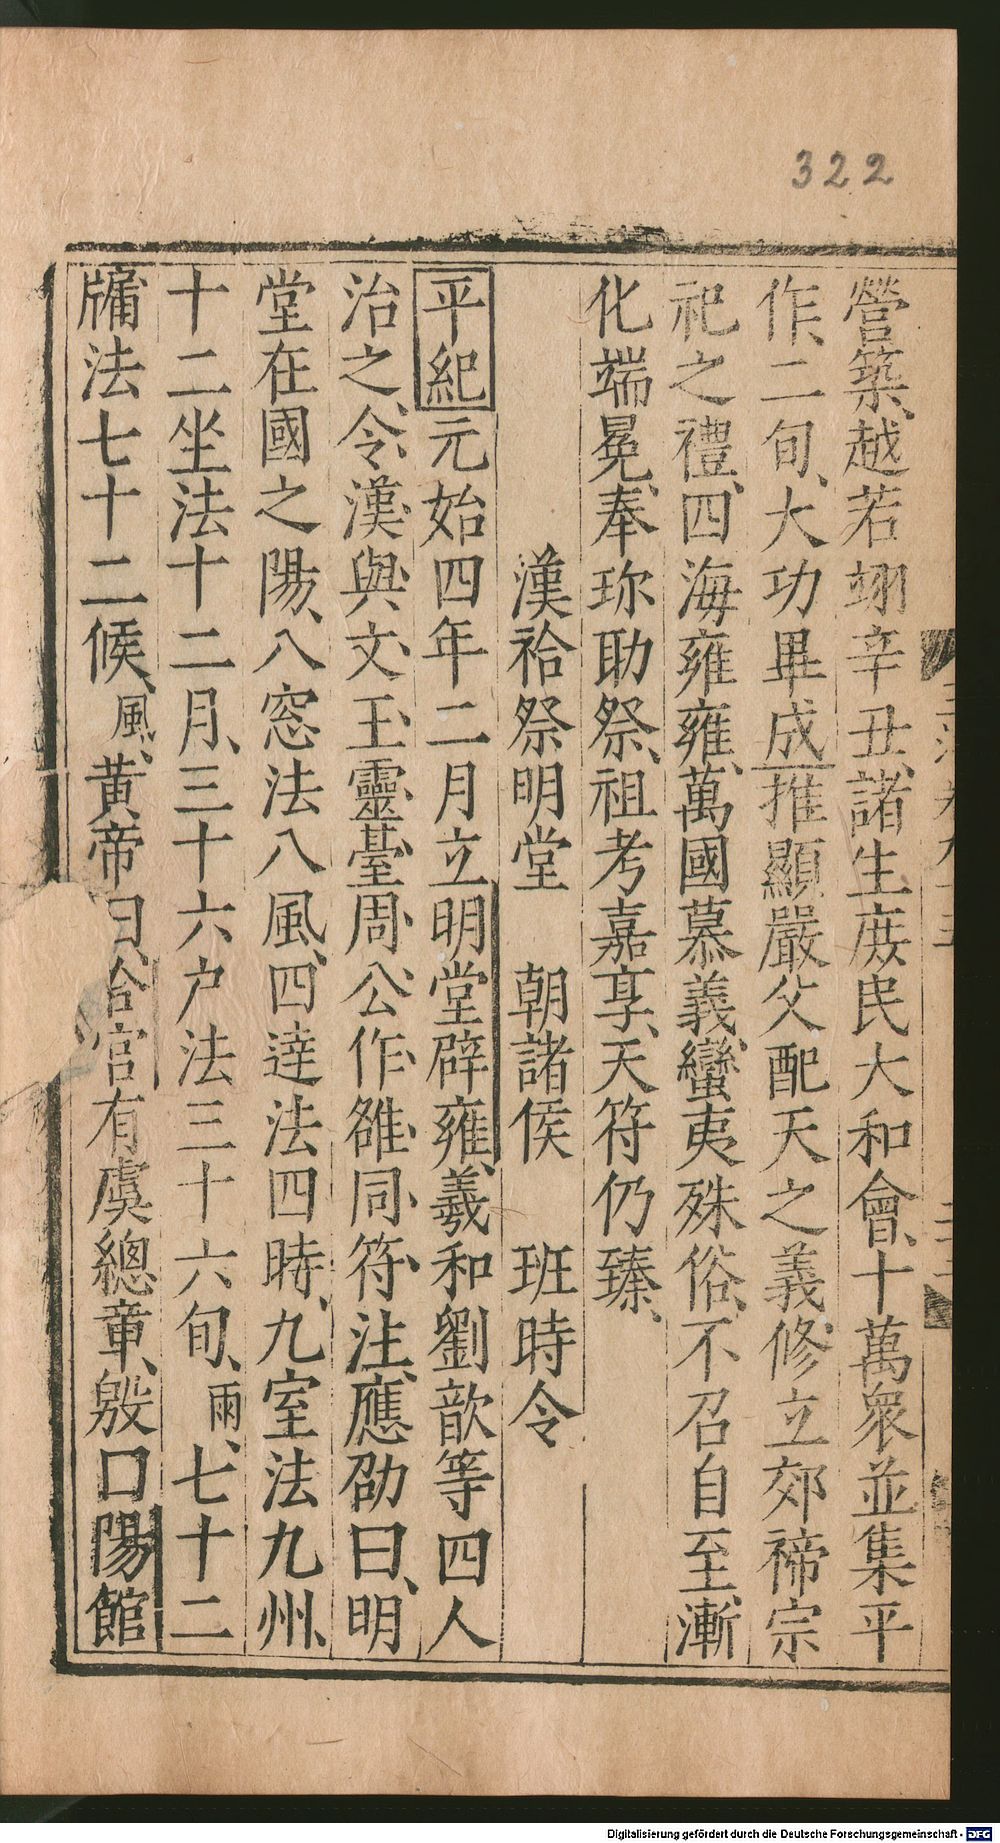 322
營築、越若翊辛丑、諸生庶民大和會、十萬衆並集平
作、二旬、大功畢成推顯嚴父配天之義修立郊禘宗
祀之禮、四海雍雍、萬國慕義、蠻夷殊俗、不召自至、漸
化端冕、奉珎助祭、祖考嘉享、天符仍臻、
漢祫祭明堂 朝諸侯 班時令
平紀元始四年二月立明堂辟雍、羲和劉歆等四人
治之、令、漢與、文、王、靈臺、周、公、作、雒、同、符、注、應劭曰、明
堂在國之陽、八窓法八風、四達法四時、九室法九州、
十二坐法十二月、三十六户法三十六旬、雨、七十二
牖法七十二候、風、黃帝曰、合宮有虞總章、殷曰陽館
Digitalisierung gefördert durch die Deutsche Forschungsgemeinschaft - DFG